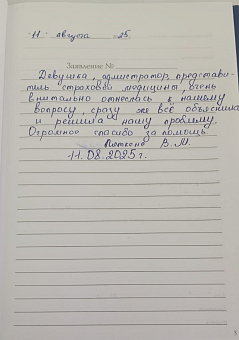 "11" августа 25
Заявление №
Девушка, адмистратор, представи-
тель страховой медицины, очень
внитально отнеслась к нашему
вопросу, сразу же всё объяснила
и решила нашу проблему.
Огромное спасибо за помощь.
В. М.
11.08.2025 г.
5